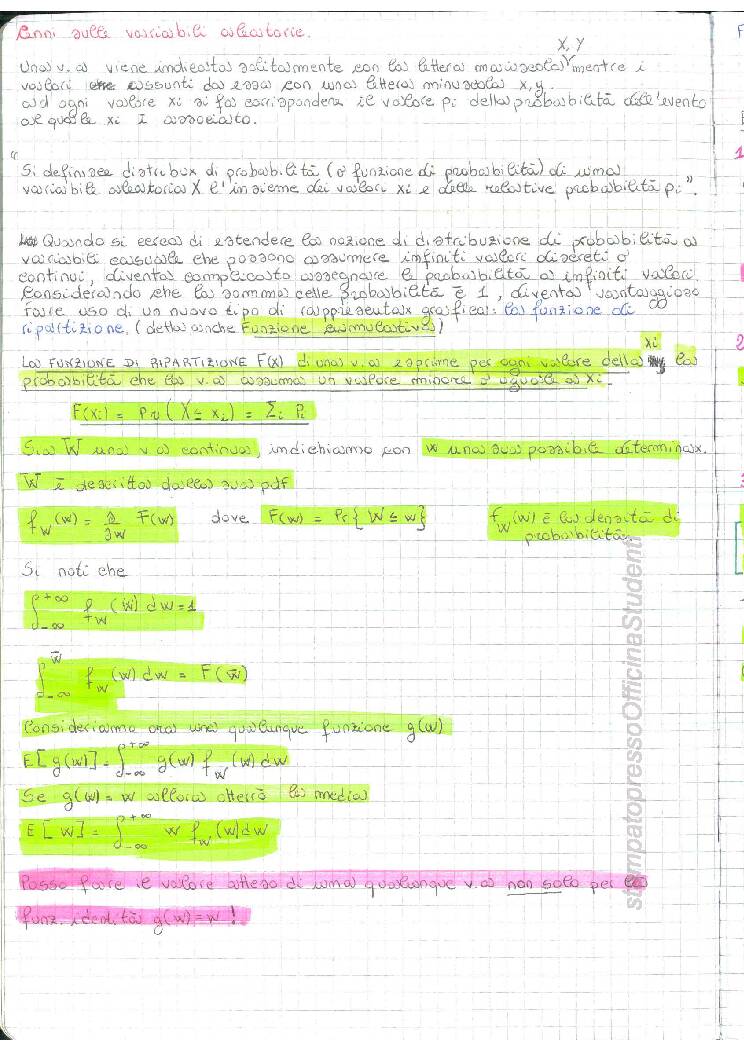 Cenni sulle variabili aleatorie.
X, Y
Una v.a viene indicata solitamente con la lettera maiuscola mentre i
valori che assunti da essa con una lettera minuscola x,y.
ad ogni valore xi si fa corrispondere il valore pi della probabilità dell'evento
al quale xi è associato.
"Si definisce distribux di probabilità (o funzione di probabilità) di una
variabile aleatoria X l'insieme dei valori xi e delle relative probabilità pi".
Quando si cerca di estendere la nozione di distribuzione di probabilità a
variabili casuale che possono assumere infiniti valori discreti o
continui, diventa complicato assegnare le probabilità a infiniti valori.
Considerando che la somma celle probabilità è 1, diventa vantaggioso
fare uso di un nuovo tipo di rappresentax grafica: la funzione di
ripartizione. (detta anche Funzione cumulativa)
La FUNZIONE DI RIPARTIZIONE F(x) di una v.a esprime per ogni valore della xi la
probabilità che la v.a assuma un valore minore o uguale a xi.
F(xi) = Pr (X ≤ xi) = Σi Pi
Sia W una v.a continua, indichiamo con w una sua possibile determinax.
W è descritta dalla sua pdf
f_W(w) = ∂/∂w F(w) dove F(w) = Pr{W ≤ w} f_W(w) è la densità di
probabilità.
Si noti che
∫_-∞^+∞ f_W(w) dw = 1
∫_-∞^w̄ f_W(w) dw = F(w̄)
Consideriamo ora una qualunque funzione g(w)
E[g(w)] = ∫_-∞^+∞ g(w) f_W(w) dw
Se g(w) = w allora otterrò la media
E[w] = ∫_-∞^+∞ w f_W(w) dw
Posso fare il valore atteso di una qualunque v.a non solo per la
funz. identità g(w) = w !
stampatopressoOfficinaStudenti